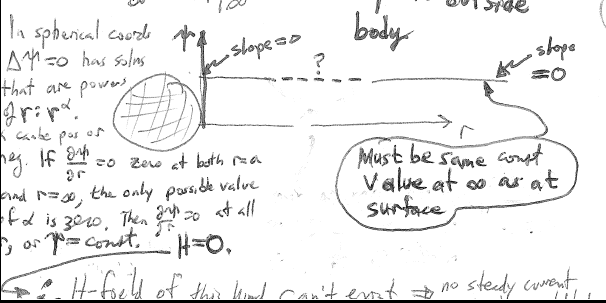 outside
In spherical coords
ΔΨ=0 has solns
that are powers
of r: r^α.
can be pos or
neg. If ∂Ψ/∂r =0 zero at both r=a
and r=∞, the only possible value
of α is zero. Then ∂Ψ/∂r =0 at all
r, or Ψ=const. H=0.
Ψ
slope=0
?
body.
slope
=0
r
Must be same const
Value at ∞ as at
surface
H-field of this kind can't exist ⇒ no steady current